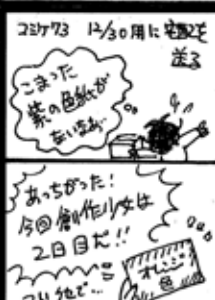 コミケ73 12/30用に宅配を
送る
こまった
紫の色紙が
ないなあ…
あっちがった!
今回創作少女は
2日目だ!!
オレンジ
色